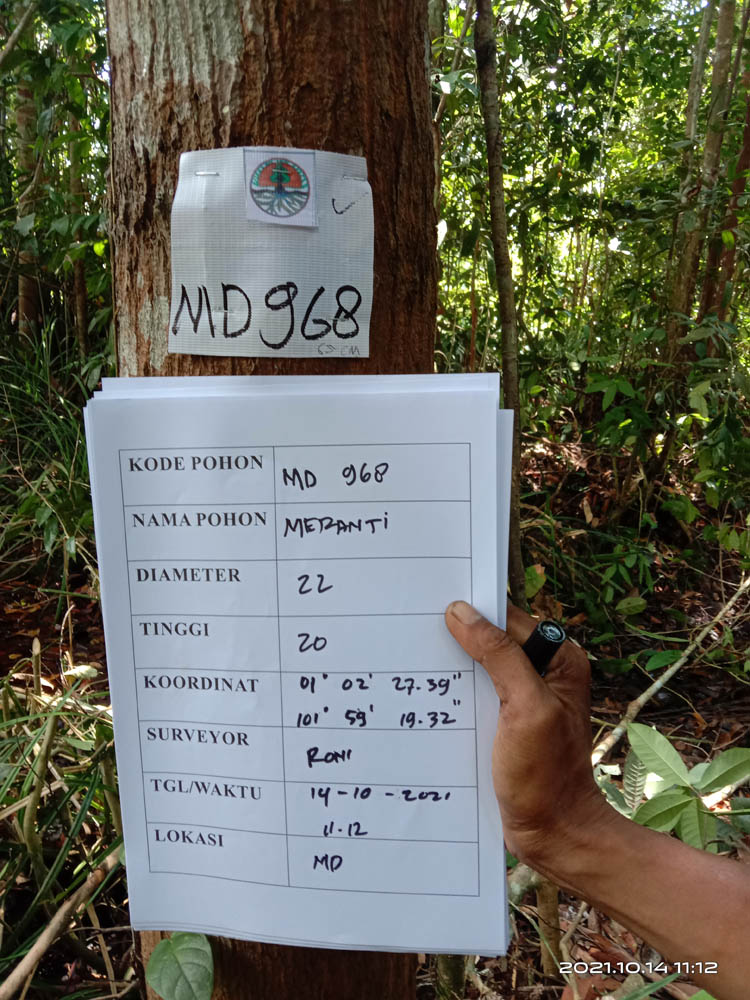 MD968
KODE POHON MD 968
NAMA POHON MERANTI
DIAMETER 22
TINGGI 20
KOORDINAT 01° 02' 27.39"
101° 59' 19.32"
SURVEYOR RONI
TGL/WAKTU 14-10-2021
11.12
LOKASI MD
2021.10.14 11:12